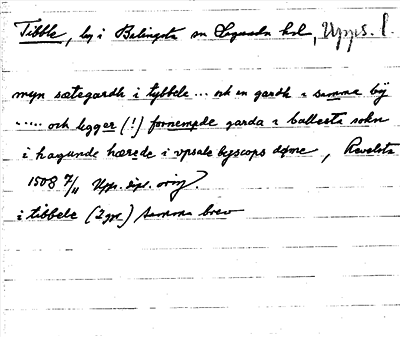 Tibble, by i Balingsta sn Lagunda hd, Upps. l.
myn sætegardh i tybbele ... och en gardh i samma by
..... och legger (!) fornempde garda i ballesta sokn
i hagunde hærede i vpsale byscops døme, Revelsta
1508 7/11 Upps. dipl. orig.
i tibbele (2 ggr) samma brev